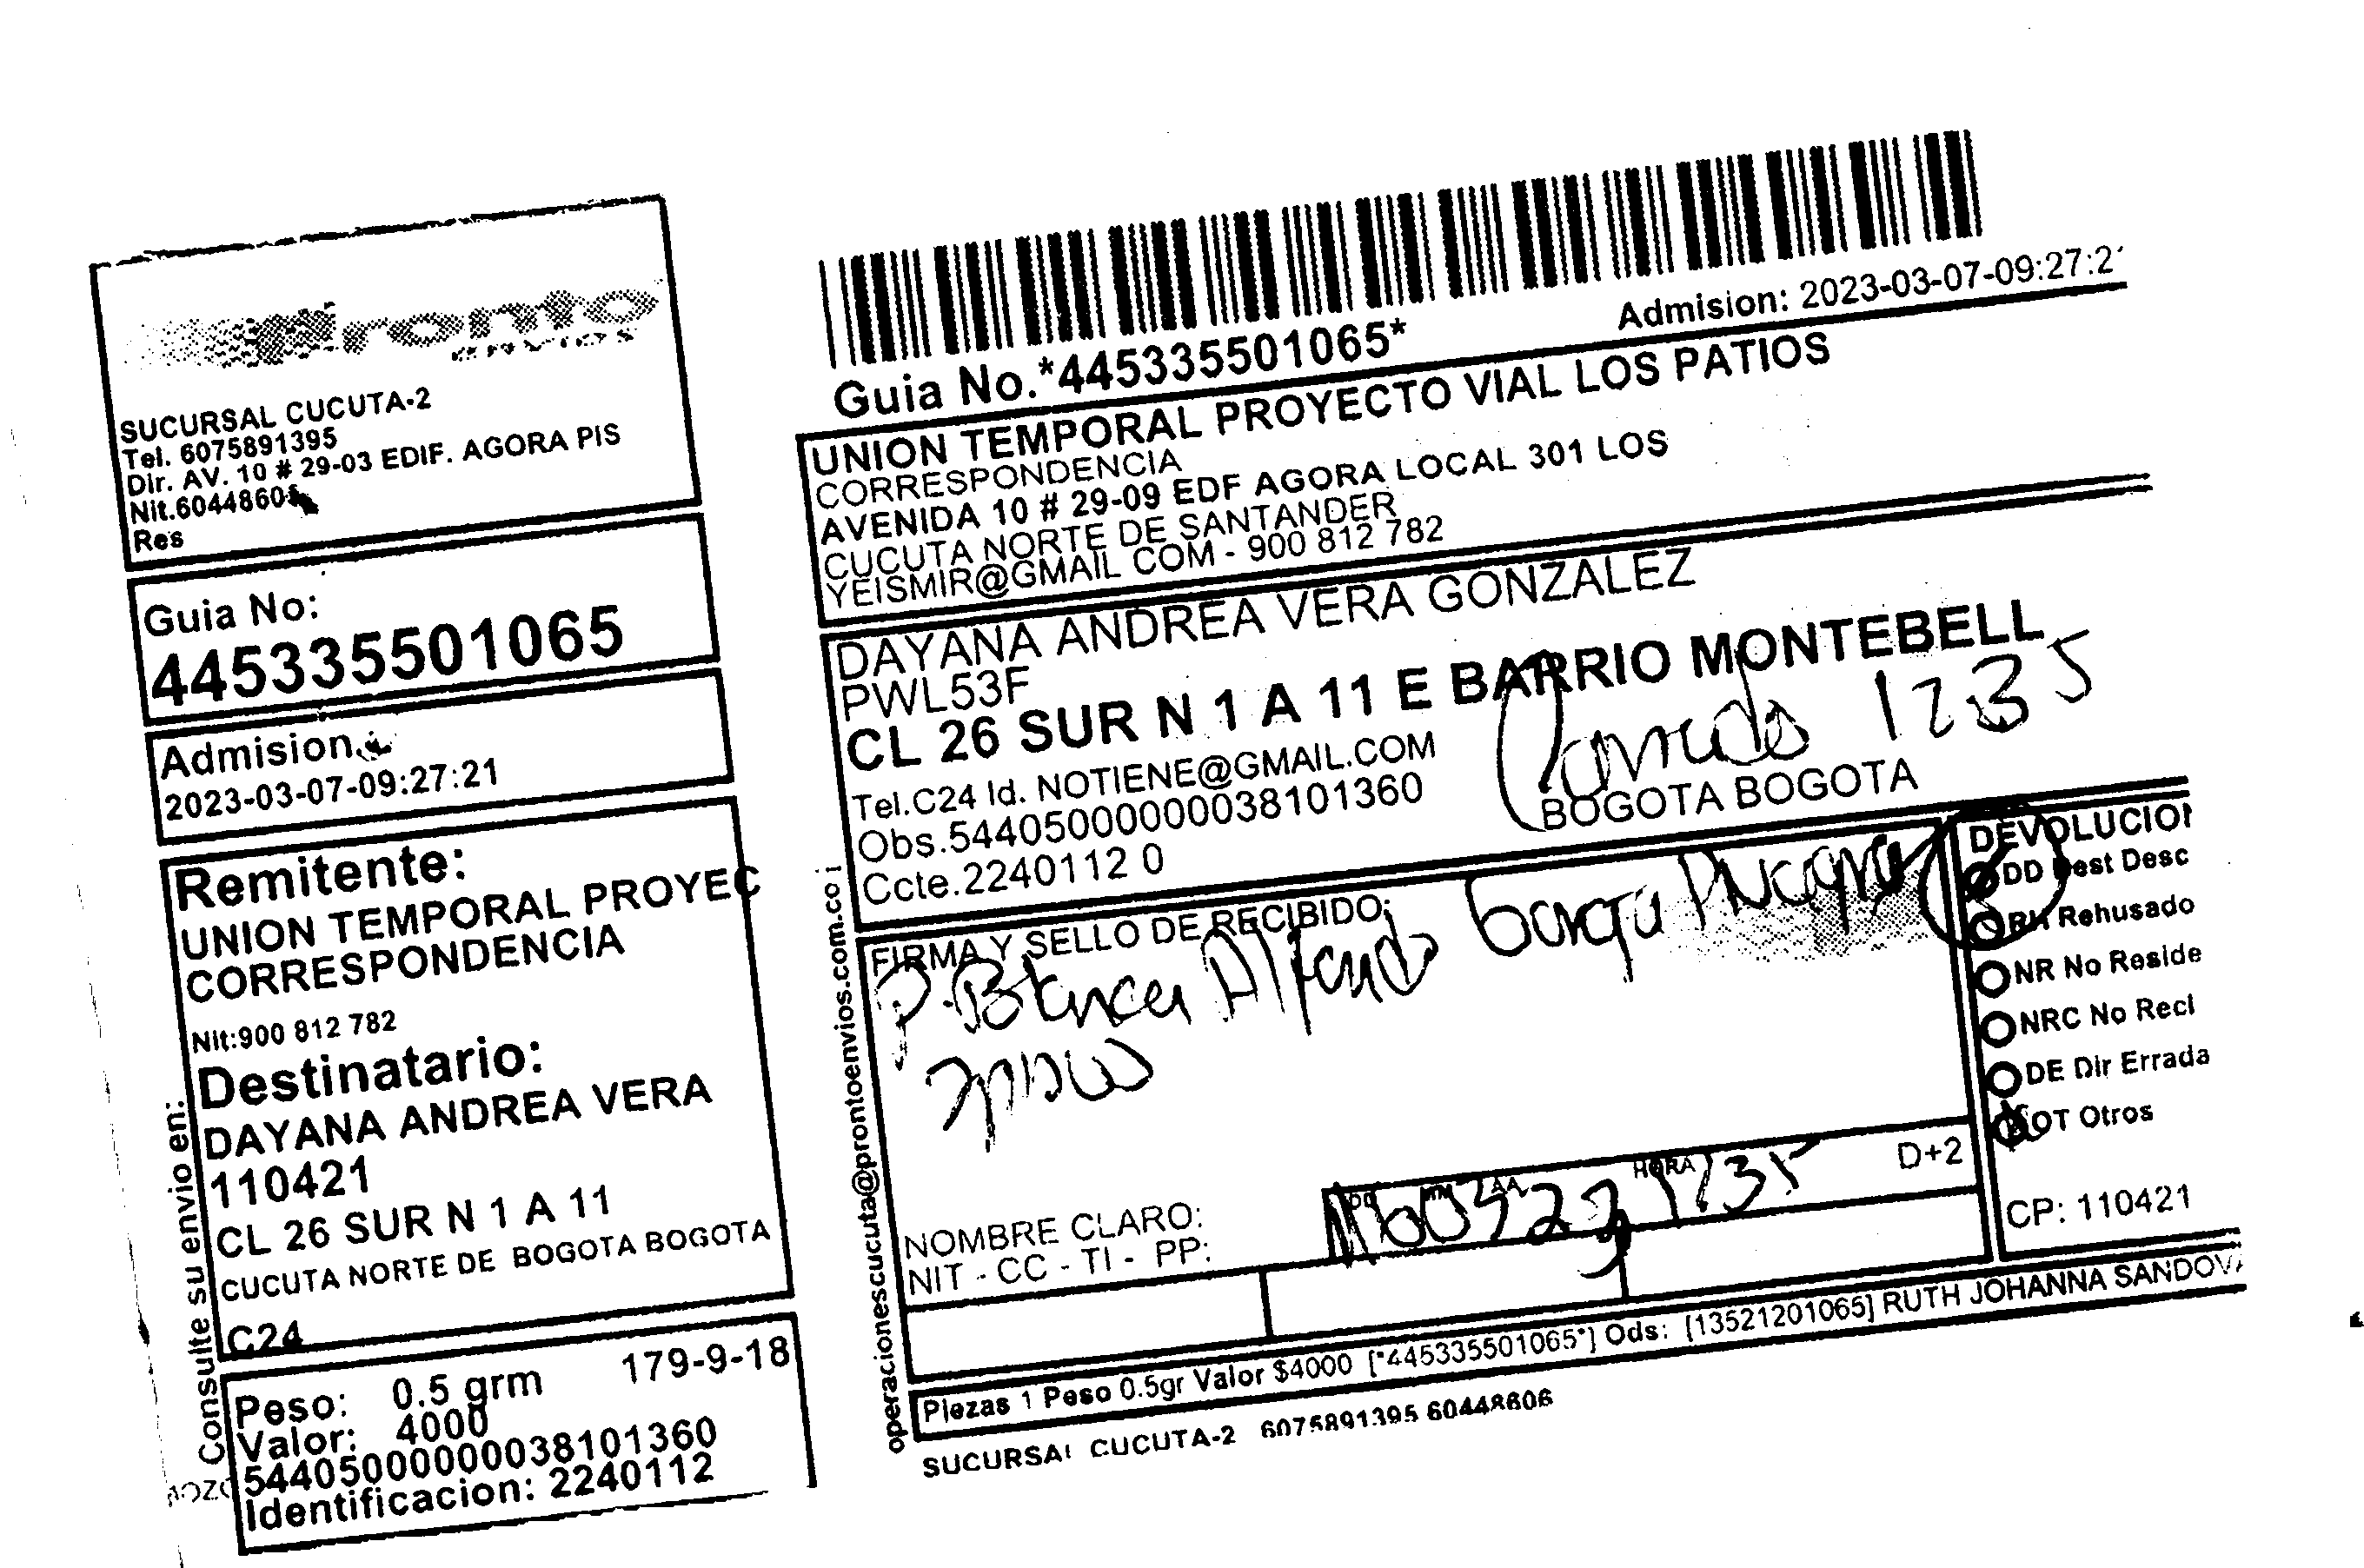 Pronto
envios
SUCURSAL CUCUTA-2
Tel. 6075891395
Dir. AV. 10 # 29-03 EDIF. AGORA PIS
Nit.6044860
Res
Guia No:
445335501065
Admision
2023-03-07-09:27:21
Remitente:
UNION TEMPORAL PROYEC
CORRESPONDENCIA
Nit:900 812 782
Destinatario:
DAYANA ANDREA VERA
110421
CL 26 SUR N 1 A 11
CUCUTA NORTE DE BOGOTA BOGOTA
C24
Peso: 0.5 grm 179-9-18
Valor: 4000
54405000000038101360
Identificacion: 2240112
Consulte su envio en:
Guia No.*445335501065*
Admision: 2023-03-07-09:27:2
UNION TEMPORAL PROYECTO VIAL LOS PATIOS
CORRESPONDENCIA
AVENIDA 10 # 29-09 EDF AGORA LOCAL 301 LOS
CUCUTA NORTE DE SANTANDER
YEISMIR@GMAIL COM - 900 812 782
DAYANA ANDREA VERA GONZALEZ
PWL53F
CL 26 SUR N 1 A 11 E BARRIO MONTEBELL
Cerrado 1235
Tel.C24 Id. NOTIENE@GMAIL.COM
BOGOTA BOGOTA
Obs.54405000000038101360
Ccte.2240112 0
operacionescucuta@prontoenvios.com.co
FIRMA Y SELLO DE RECIBIDO:
P. Blanca
NOMBRE CLARO:
NIT - CC - TI - PP:
DD MM AA HORA
D+2
DEVOLUCION
DD Dest Desc
RH Rehusado
NR No Reside
NRC No Recl
DE Dir Errada
OT Otros
CP: 110421
Piezas 1 Peso 0.5gr Valor $4000 [*445335501065*] Ods: [13521201065] RUTH JOHANNA SANDOV
SUCURSAL CUCUTA-2 6075891395 60448606